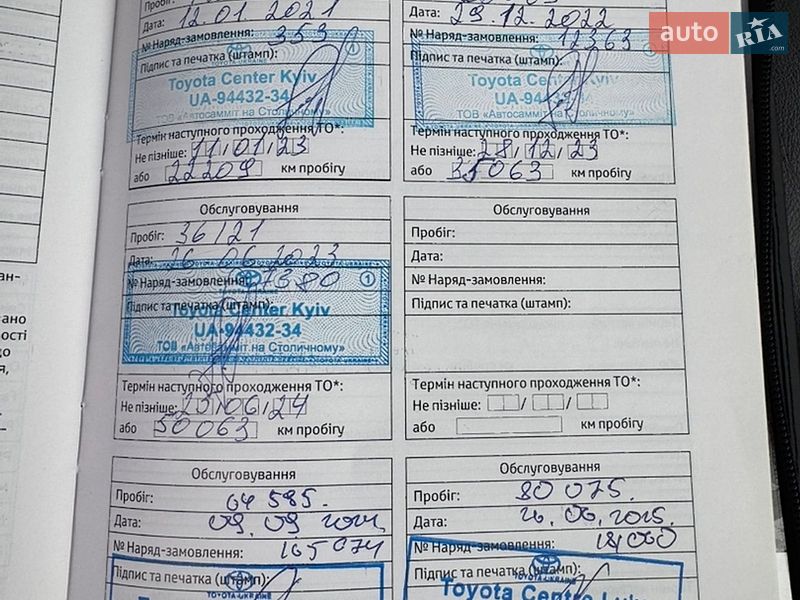 Пробіг:
Дата: 12.01.2021
№ Наряд-замовлення: 353
Підпис та печатка (штамп):
Toyota Center Kyiv
UA-94432-34
ТОВ «Автосамміт на Столичному»
Термін наступного проходження ТО*:
Не пізніше: 11/01/23
або 22209 км пробігу
Дата: 29.12.2022
№ Наряд-замовлення: 12363
Підпис та печатка (штамп):
Toyota Center Kyiv
UA-94432-34
ТОВ «Автосамміт на Столичному»
Термін наступного проходження ТО*:
Не пізніше: 28/12/23
або 35063 км пробігу
auto RIA .com
Обслуговування
Пробіг: 36121
Дата: 26.06.2023
№ Наряд-замовлення: 7380
Підпис та печатка (штамп):
Toyota Center Kyiv
UA-94432-34
ТОВ «Автосамміт на Столичному»
Термін наступного проходження ТО*:
Не пізніше: 25/06/24
або 50063 км пробігу
Обслуговування
Пробіг:
Дата:
№ Наряд-замовлення:
Підпис та печатка (штамп):
Термін наступного проходження ТО*:
Не пізніше: / /
або км пробігу
Обслуговування
Пробіг: 64 585.
Дата: 09.09 2024
№ Наряд-замовлення: 165074
Підпис та печатка (штамп):
TOYOTA-UKRAINE
Обслуговування
Пробіг: 80 075.
Дата: 26.06.2025.
№ Наряд-замовлення:
Підпис та печатка (штамп):
TOYOTA-UKRAINE
Toyota Center